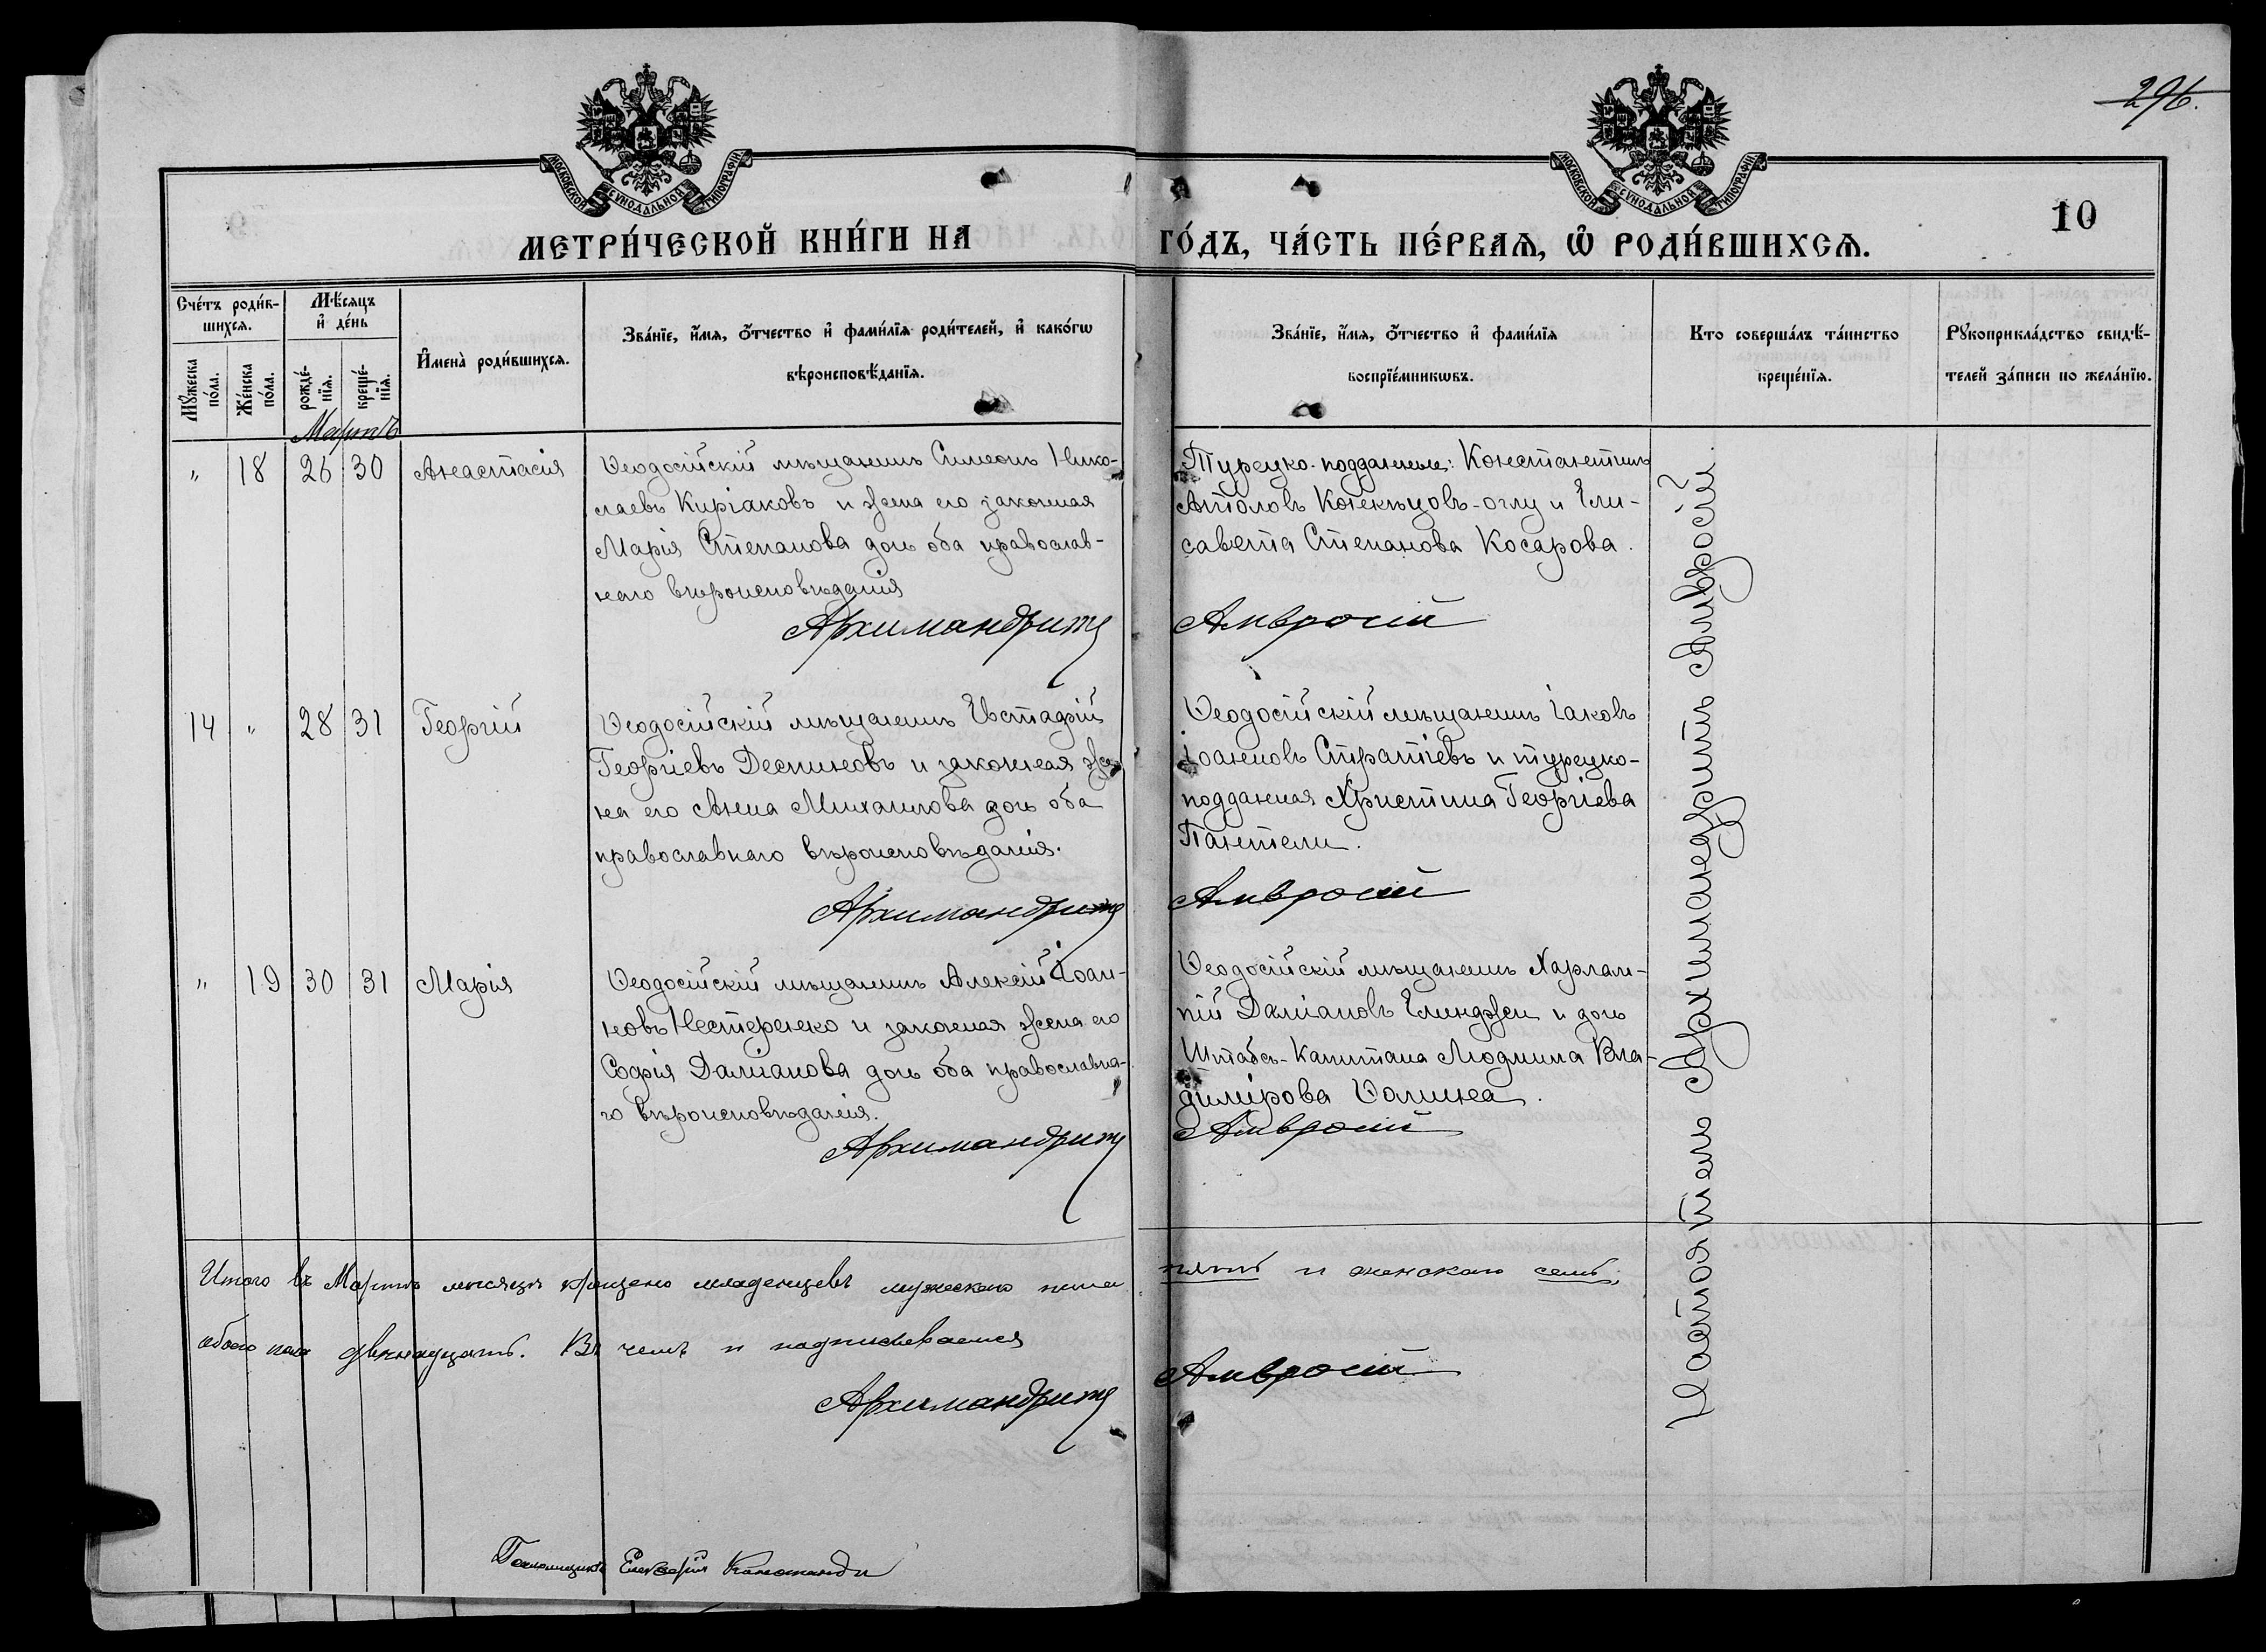 296.
МОСКОВСКОЙ СѴНОДАЛЬНОЙ ТИПОГРАФІИ
МОСКОВСКОЙ СѴНОДАЛЬНОЙ ТИПОГРАФІИ
10
МЕТРИ́ЧЕСКОЙ КНИ́ГИ НА ГО́ДЪ, ЧА́СТЬ ПЕ́РВАѦ, Ѡ҆ РОДИ́ВШИХСѦ.
Сче́тъ роди́в-
шихсѧ.
Мꙋ́жеска
по́ла.
Же́нска
по́ла.
Мѣ́сѧцъ
и҆ де́нь
рожде́-
нїѧ.
креще́-
нїѧ.
И҆мена̀ роди́вшихсѧ.
Зва́нїе, и҆́мѧ, ѻ҆́тчество и҆ фами́лїѧ роди́телей, и҆ како́гѡ
вѣроисповѣ́данїѧ.
Зва́нїе, и҆́мѧ, ѻ҆́тчество и҆ фами́лїѧ
воспрїе́мникѡвъ.
Кто соверша́лъ та́инство
креще́нїѧ.
Рꙋкоприкла́дство свидѣ́-
телей за́писи по жела́нїю.
Мартъ
" 18 26 30 Анастасія
Ѳеодосійскій мѣщанинъ Симеонъ Нико-
лаевъ Киріаковъ и жена его законная
Марія Степанова дочь оба православ-
наго вѣроисповѣданія
Архимандритъ
Турецко-подданные: Константинъ
Коненцовъ-оглу и Ели-
савета Степанова Косарова.
Амвросій
14 " 28 31 Георгій
Ѳеодосійскій мѣщанинъ Евстафій
Георгіевъ Деспиновъ и законная же-
на его Анна Михаилова дочь оба
православнаго вѣроисповѣданія.
Архимандритъ
Ѳеодосійскій мѣщанинъ Іаковъ
Іоанновъ Стратіевъ и турецко-
подданная Христина Георгіева
Пантели.
Амвросій
" 19 30 31 Марія
Ѳеодосійскій мѣщанинъ Алексій Іоан-
новъ Нестеренко и законная жена его
Софія Даміанова дочь оба православна-
го вѣроисповѣданія.
Архимандритъ
Ѳеодосійскій мѣщанинъ Харлам-
пій Даміановъ Елинджи и дочь
Штабсъ-Капитана Людмила Вла-
димірова Ѳомина.
Амвросій
Настоятель Архимандритъ Амвросій.
Итого въ Мартѣ мѣсяцѣ крещено младенцевъ мужескаго пола пять и женскаго семь,
обоего пола двѣнадцать. Въ чемъ и подписываемся
Архимандритъ Амвросій
Псаломщикъ Елевферій